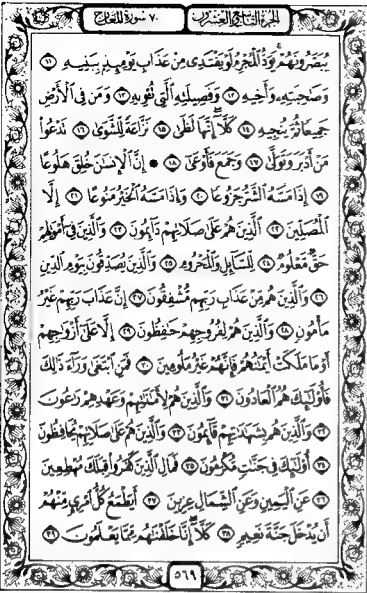 الجزء التاسع والعشرون ٧٠ سورة المعارج
يُبَصَّرُونَهُمْ يَوَدُّ ٱلْمُجْرِمُ لَوْ يَفْتَدِى مِنْ عَذَابِ يَوْمِئِذٍۭ بِبَنِيهِ ١١
وَصَٰحِبَتِهِۦ وَأَخِيهِ ١٢ وَفَصِيلَتِهِ ٱلَّتِى تُـْٔوِيهِ ١٣ وَمَن فِى ٱلْأَرْضِ
جَمِيعًا ثُمَّ يُنجِيهِ ١٤ كَلَّآ إِنَّهَا لَظَىٰ ١٥ نَزَّاعَةً لِّلشَّوَىٰ ١٦ تَدْعُوا۟
مَنْ أَدْبَرَ وَتَوَلَّىٰ ١٧ وَجَمَعَ فَأَوْعَىٰٓ ١٨ ۞ إِنَّ ٱلْإِنسَٰنَ خُلِقَ هَلُوعًا
١٩ إِذَا مَسَّهُ ٱلشَّرُّ جَزُوعًا ٢٠ وَإِذَا مَسَّهُ ٱلْخَيْرُ مَنُوعًا ٢١ إِلَّا
ٱلْمُصَلِّينَ ٢٢ ٱلَّذِينَ هُمْ عَلَىٰ صَلَاتِهِمْ دَآئِمُونَ ٢٣ وَٱلَّذِينَ فِىٓ أَمْوَٰلِهِمْ
حَقٌّ مَّعْلُومٌ ٢٤ لِّلسَّآئِلِ وَٱلْمَحْرُومِ ٢٥ وَٱلَّذِينَ يُصَدِّقُونَ بِيَوْمِ ٱلدِّينِ
٢٦ وَٱلَّذِينَ هُم مِّنْ عَذَابِ رَبِّهِم مُّشْفِقُونَ ٢٧ إِنَّ عَذَابَ رَبِّهِمْ غَيْرُ
مَأْمُونٍ ٢٨ وَٱلَّذِينَ هُمْ لِفُرُوجِهِمْ حَٰفِظُونَ ٢٩ إِلَّا عَلَىٰٓ أَزْوَٰجِهِمْ
أَوْ مَا مَلَكَتْ أَيْمَٰنُهُمْ فَإِنَّهُمْ غَيْرُ مَلُومِينَ ٣٠ فَمَنِ ٱبْتَغَىٰ وَرَآءَ ذَٰلِكَ
فَأُو۟لَٰٓئِكَ هُمُ ٱلْعَادُونَ ٣١ وَٱلَّذِينَ هُمْ لِأَمَٰنَٰتِهِمْ وَعَهْدِهِمْ رَٰعُونَ
٣٢ وَٱلَّذِينَ هُم بِشَهَٰدَٰتِهِمْ قَآئِمُونَ ٣٣ وَٱلَّذِينَ هُمْ عَلَىٰ صَلَاتِهِمْ يُحَافِظُونَ
٣٤ أُو۟لَٰٓئِكَ فِى جَنَّٰتٍ مُّكْرَمُونَ ٣٥ فَمَالِ ٱلَّذِينَ كَفَرُوا۟ قِبَلَكَ مُهْطِعِينَ
٣٦ عَنِ ٱلْيَمِينِ وَعَنِ ٱلشِّمَالِ عِزِينَ ٣٧ أَيَطْمَعُ كُلُّ ٱمْرِئٍ مِّنْهُمْ
أَن يُدْخَلَ جَنَّةَ نَعِيمٍ ٣٨ كَلَّآ إِنَّا خَلَقْنَٰهُم مِّمَّا يَعْلَمُونَ ٣٩
٥٦٩